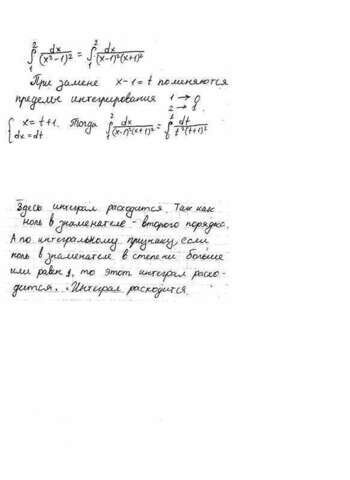 ∫₁² dx/(x²-1)² = ∫₁² dx/(x-1)²(x+1)²
При замене x-1=t поменяются
пределы интегрирования 1 → 0
2 → 1.
{ x = t+1. Тогда ∫₁² dx/(x-1)²(x+1)² = ∫₀¹ dt/t²(t+1)²
dx = dt
Здесь интеграл расходится. Так как
ноль в знаменателе - второго порядка.
А по интегральному признаку, если
ноль в знаменателе в степени больше
или равен 1, то этот интеграл расхо-
дится. Интеграл расходится.